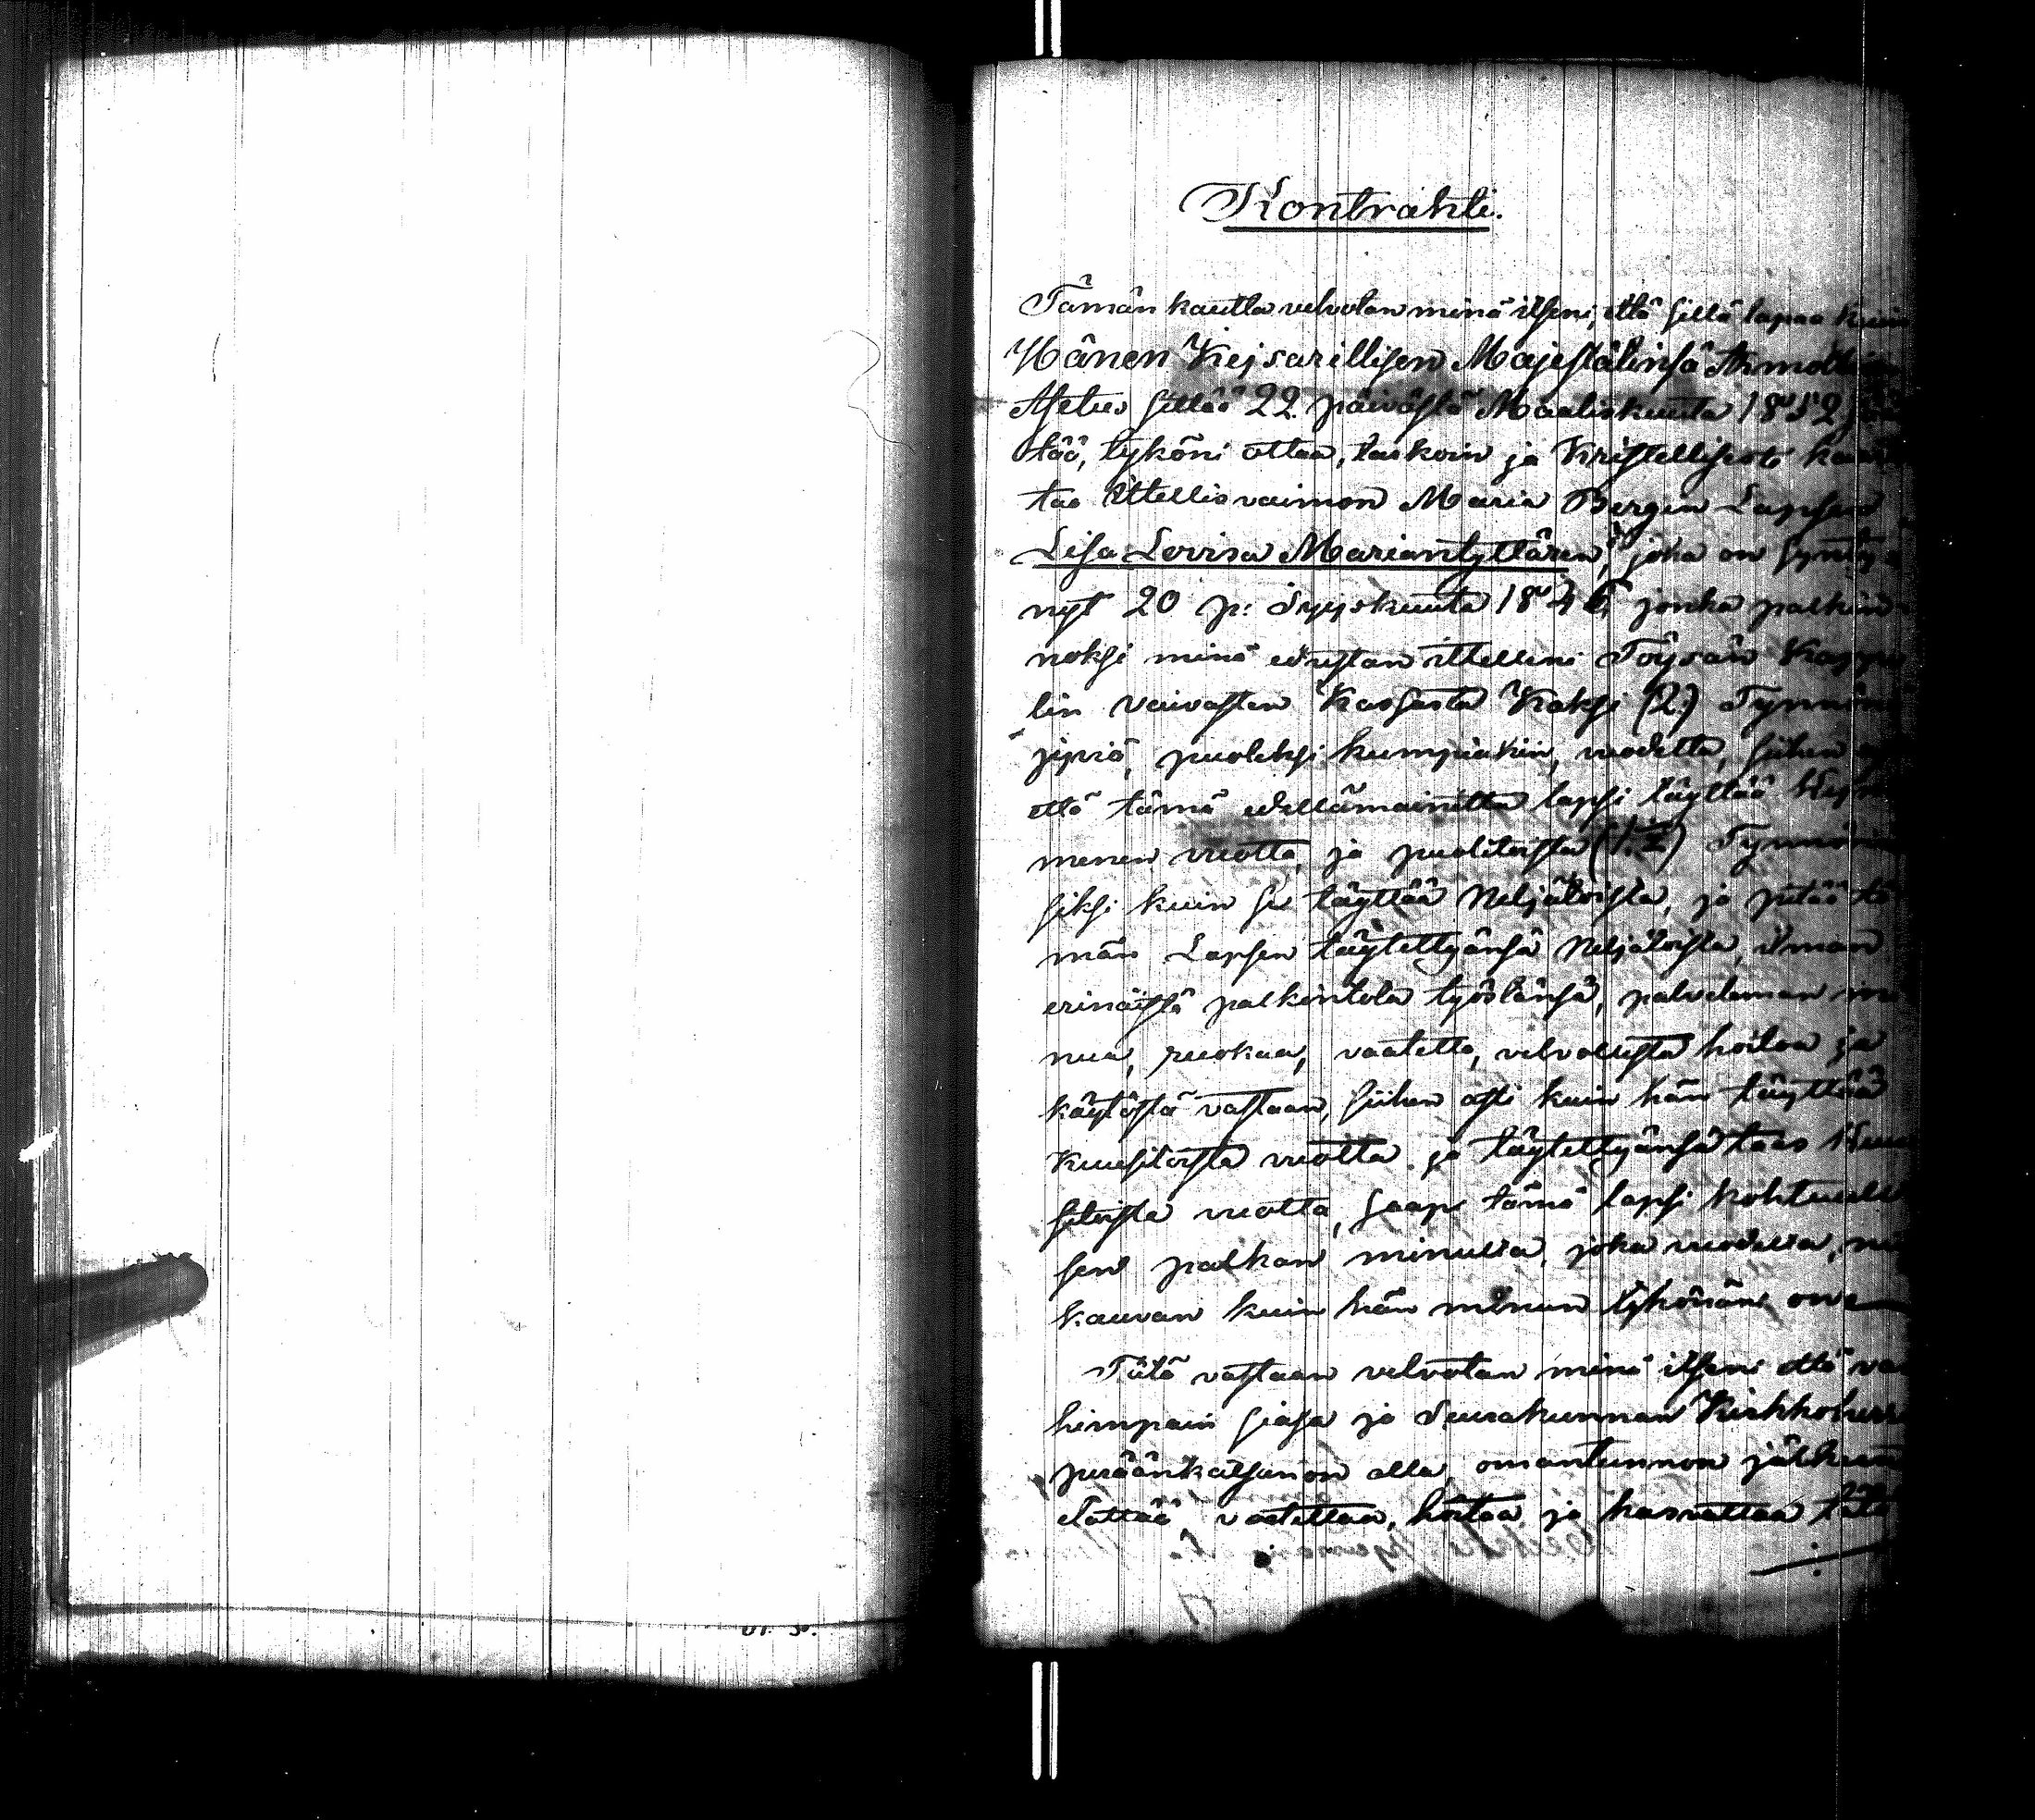 Kontrahti.
Tämän kautta velvotan minä itseni, että sillä tapaa kuin
Hänen Kejsarillisen Majestätinsä Armollinen
Asetus siltää 22. päivästä Maaliskuuta 1852
tää, tyköni ottaa, laskoin ja Kristellisesti kas
taa Ittellisvaimon Maria Bergin Lapsen
Lisa Lovisa Mariantyttären, joka on synty
nyt 20 p: Syyskuuta 1846, jonka palkin
noksi minä edustan ittelleni Töysän Kappe
lin Vaivasten Kassasta Kaksi (2:) Tynnöri
jyviä, puoleksi kumpiakin, vuodelta, siihen
että tämä edellämainittu lapsi täyttää kym
menen vuotta, ja puolitoista (1.½) Tynnöri
siksi kuin se täyttää Neljätoista, ja pitää tä
män Lapsen täytettyänsä Neljätoista, ilman
erinäistä palkintola työstänsä, palveleman mi
nua, ruokaa, vaatetta, velvollista hoitoa ja
käytöstä vastaan, siihen asti kuin hän täyttää
Kuusitoista vuotta ja täytettyänsä taas Kuu
sitoista vuotta, saapi tämä lapsi kohtuulli
sen palkan minulta, joka vuodelta, nii
kauvan kuin hän minun tykönäni on
Tätä vastaan velvotan minä itseni että va
himpain siasa ja Seurakunnan Kirkkoherra
peräänkatsanon alla, omantunnon jälkeen
Elättää vaatettaa, hoitaa ja kasvattaa tätä